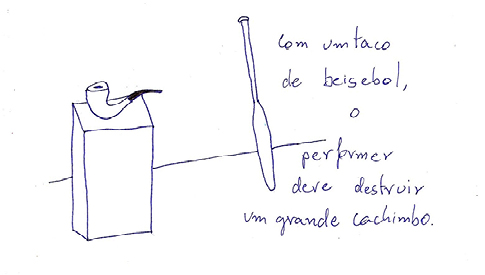 com um taco
de beisebol,
o
performer
deve destruir
um grande cachimbo.